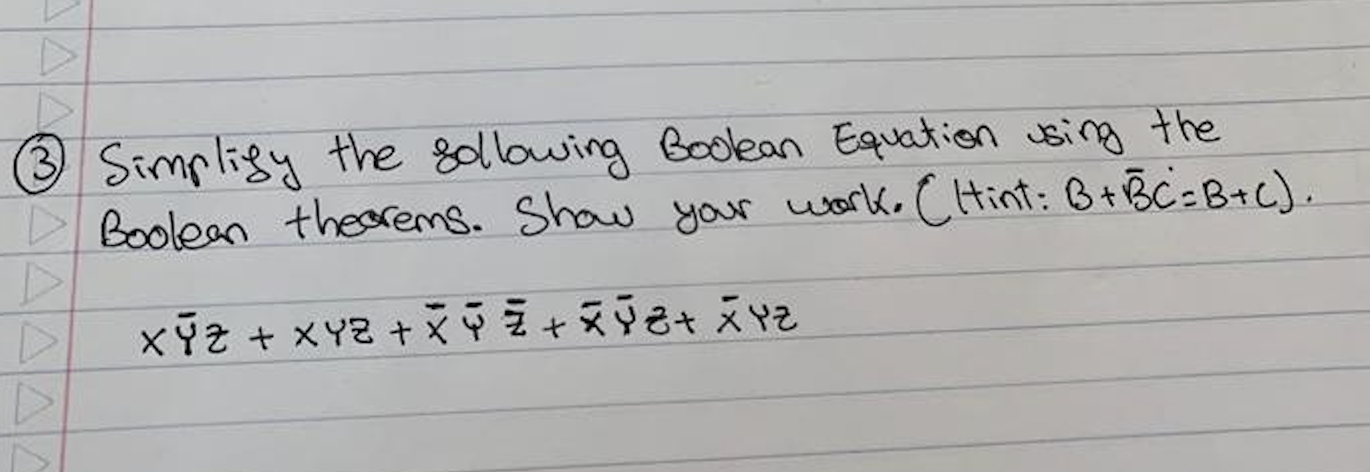 ③ Simplify the following Boolean Equation using the
Boolean theorems. Show your work. (Hint: B+B̄C=B+C).
XȲZ + XYZ + X̄ Ȳ Z̄ + X̄ȲZ+ X̄YZ